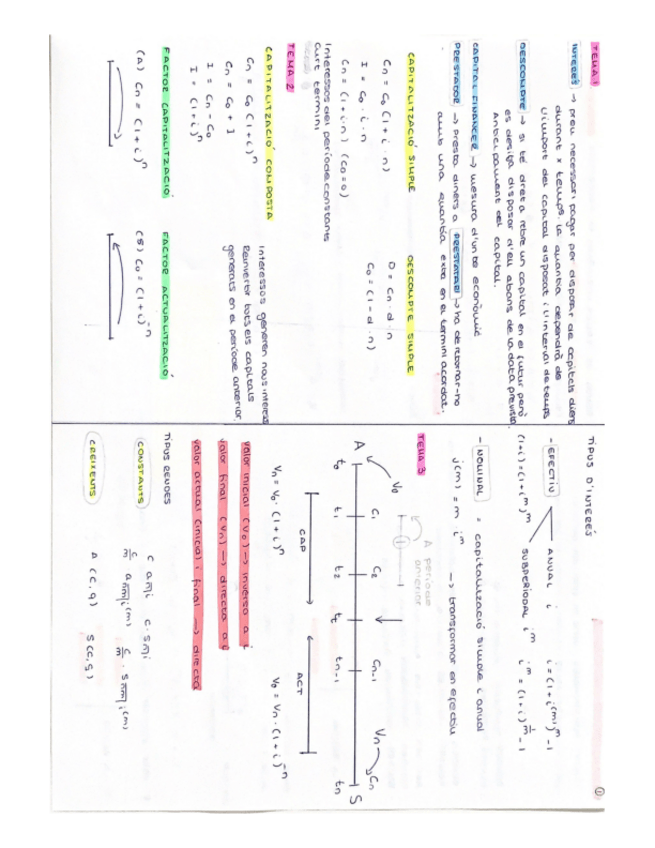 TEMA 1
INTERÈS → preu necessari pagar per disposar de capitals aliens
durant x temps, la quantia dependrà de
l'import del capital disposat i l'interval de temps
DESCOMPTE → si té dret a rebre un capital en el futur però
es desitja disposar d'ell abans de la data prevista.
Anticipament del capital.
CAPITAL FINANCER → mesura d'un be econòmic
PRESTADOR → Presta diners a PRESTATARI → ha de retornar-ho
amb una quantia extra en el termini acordat.
CAPITALITZACIÓ SIMPLE
Cn = C0 (1 + i · n)
I = C0 · i · n
Cn = (1 + i · n) (C0 = 0)
Interessos del període constants
curt termini
DESCOMPTE SIMPLE
D = Cn · d · n
C0 = (1 - d · n)
TEMA 2
CAPITALITZACIÓ COMPOSTA
Cn = C0 (1 + i)^n
Cn = C0 + I
I = Cn - C0
I = (1 + i)^n
Interessos generen nous interessos
Reinvertir tots els capitals
generats en el període anterior.
FACTOR CAPITALITZACIÓ
(A) Cn = (1 + i)^n
FACTOR ACTUALITZACIÓ
(B) C0 = (1 + i)^-n
1
TIPUS D'INTERÈS
(1+i) = (1+i^m)^m
- EFECTIU
ANUAL i i = (1 + i^(m))^m - 1
SUBPERIODAL i^m i^m = (1+i)^1/m - 1
- NOMINAL = capitalització simple i anual
j(m) = m · i^m → transformar en efectiu
TEMA 3
A període
anterior
V0 C1 C2 Cn-1 Vn Cn
A S
t0 t1 t2 tt tn-1 tn
CAP ACT
Vn = V0 · (1 + i)^n V0 = Vn · (1 + i)^-n
valor inicial (V0) → inversa a i
valor final (Vn) → directa a i
valor actual (inicial i final → directa
TIPUS RENDES
CONSTANTS
C a n̅|i C · S n̅|i
C/m a n̅m̅|i(m) C/m · S n̅m̅|i(m)
CREIXENTS
A (C, q) S (C, S)